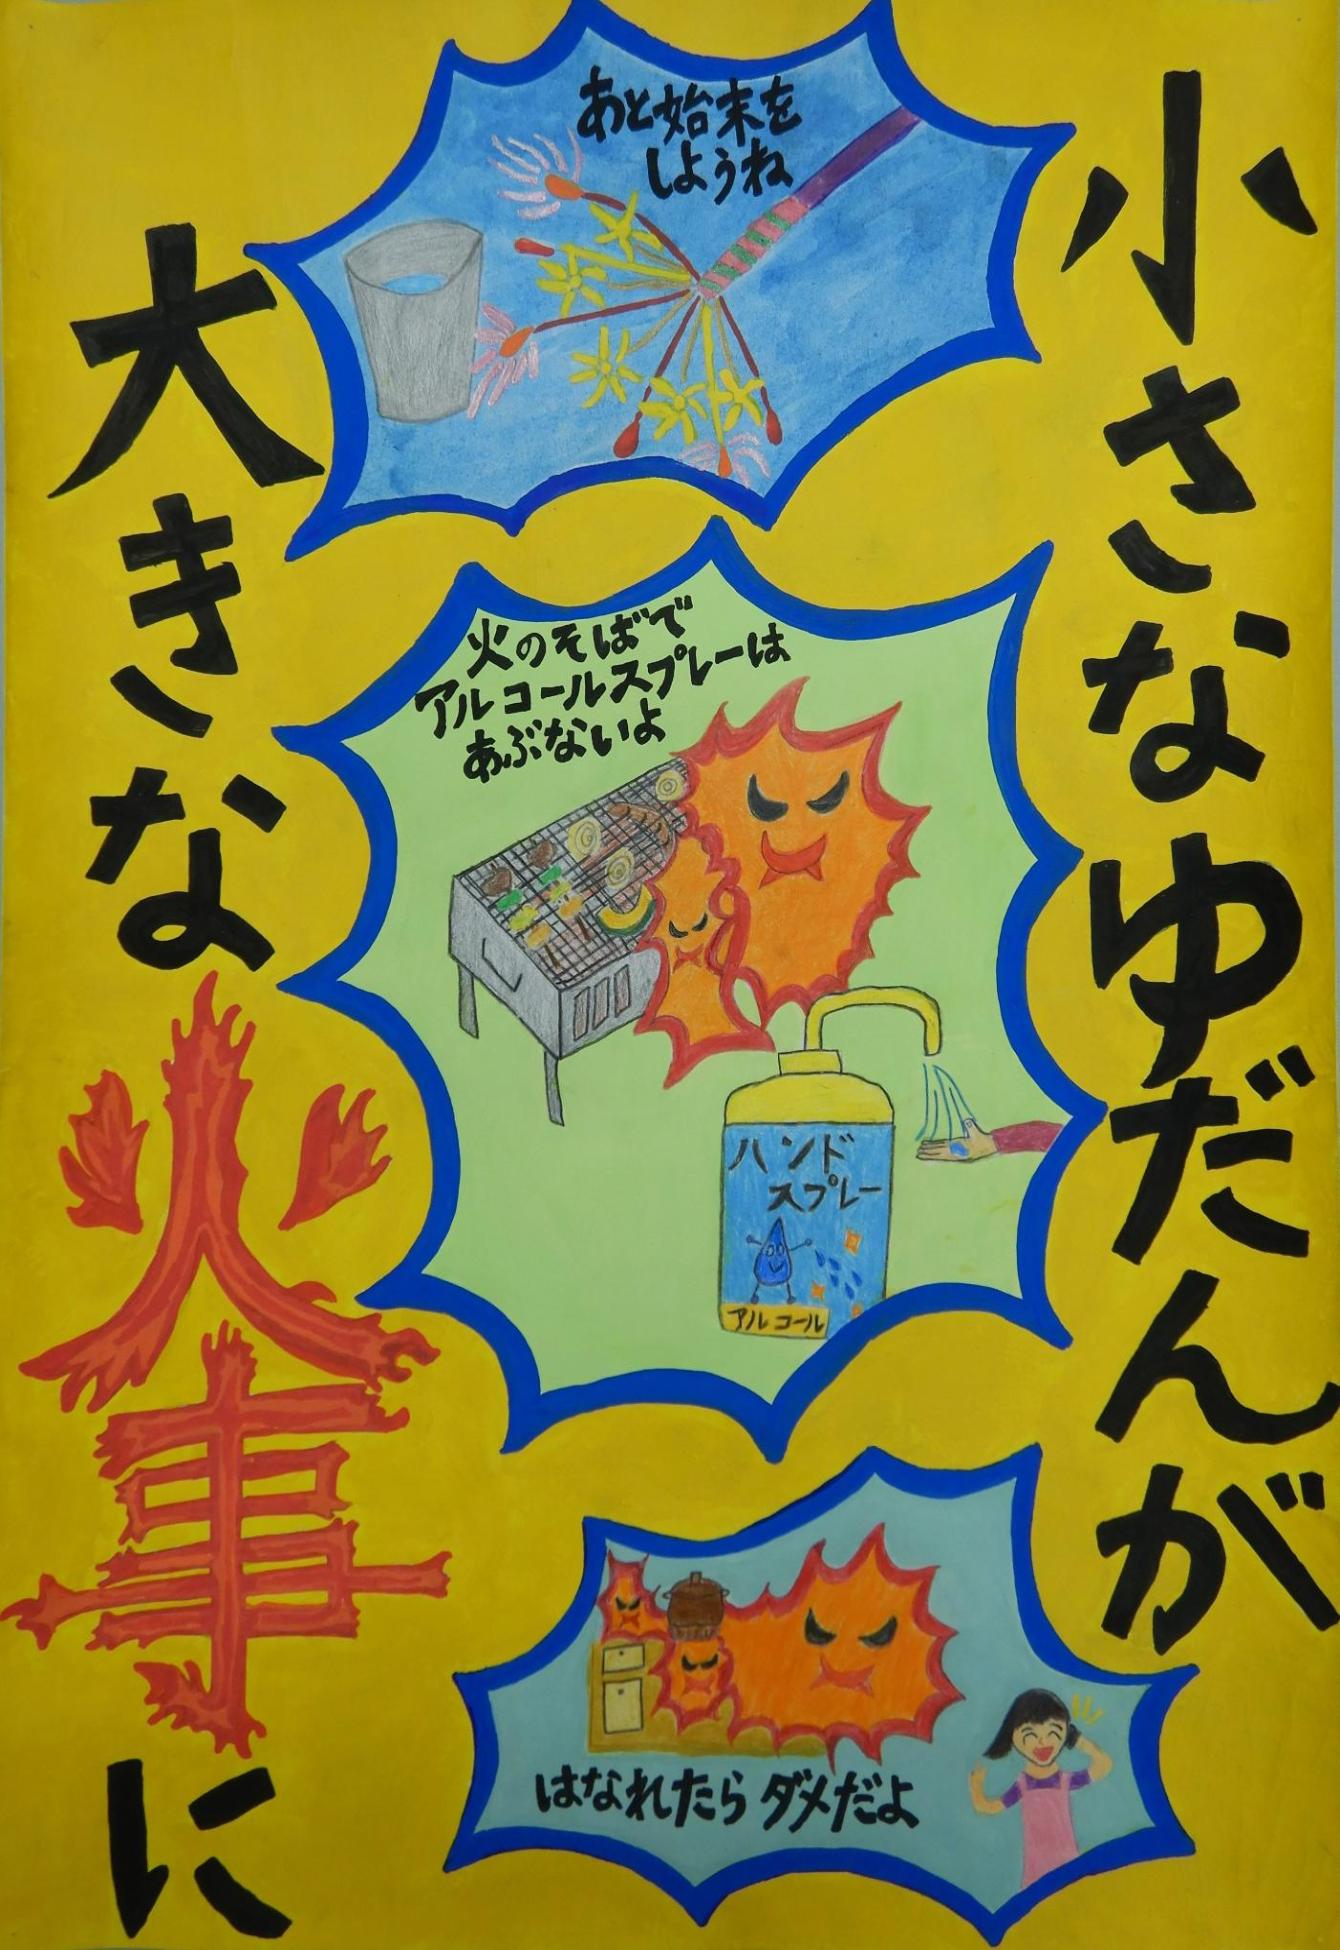 小さなゆだんが
大きな火事に
あと始末を
しようね
火のそばで
アルコールスプレーは
あぶないよ
ハンド
スプレー
アルコール
はなれたらダメだよ